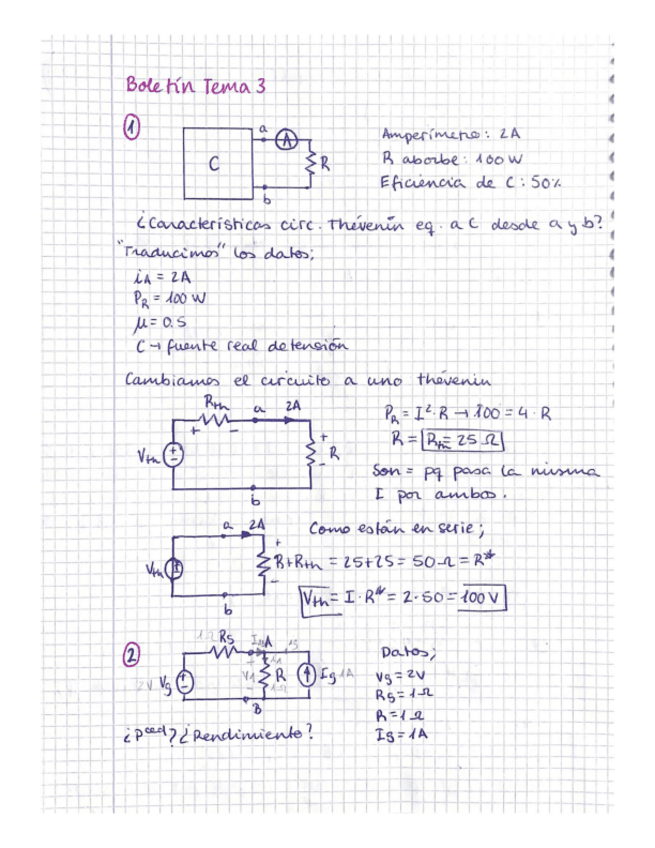 Boletín Tema 3
1
a
A
C
R
b
Amperímetro: 2A
R absorbe: 100 W
Eficiencia de C: 50%
¿Características circ. Thévenin eq. a C desde a y b?
"Traducimos" los datos;
iA = 2A
PR = 100 W
μ = 0.5
C → fuente real de tensión
Cambiamos el circuito a uno thévenin
Rth a 2A
+ - +
Vth R
-
b
PR = I²·R → 100 = 4·R
R = Rth = 25 Ω
Son = pq pasa la misma
I por ambos.
a 2A
+
Vth R+Rth = 25+25 = 50 Ω = R*
-
b
Como están en serie;
Vth = I·R* = 2·50 = 100 V
2
1Ω Rs A
2V Vg R Ig 1A
1Ω
B
Datos;
Vg = 2V
Rg = 1Ω
R = 1Ω
Ig = 1A
¿Pced? ¿Rendimiento?